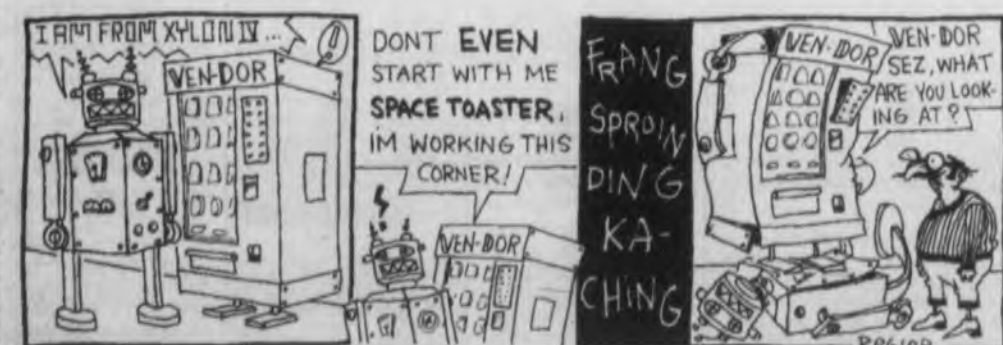 I AM FROM XYLON IV...
!
VEN-DOR
DONT EVEN
START WITH ME
SPACE TOASTER,
I'M WORKING THIS
CORNER!
VEN-DOR
FRANG
SPROIN
DING
KA-
CHING
VEN-DOR
SEZ, WHAT
ARE YOU LOOK-
ING AT?
VEN-DOR